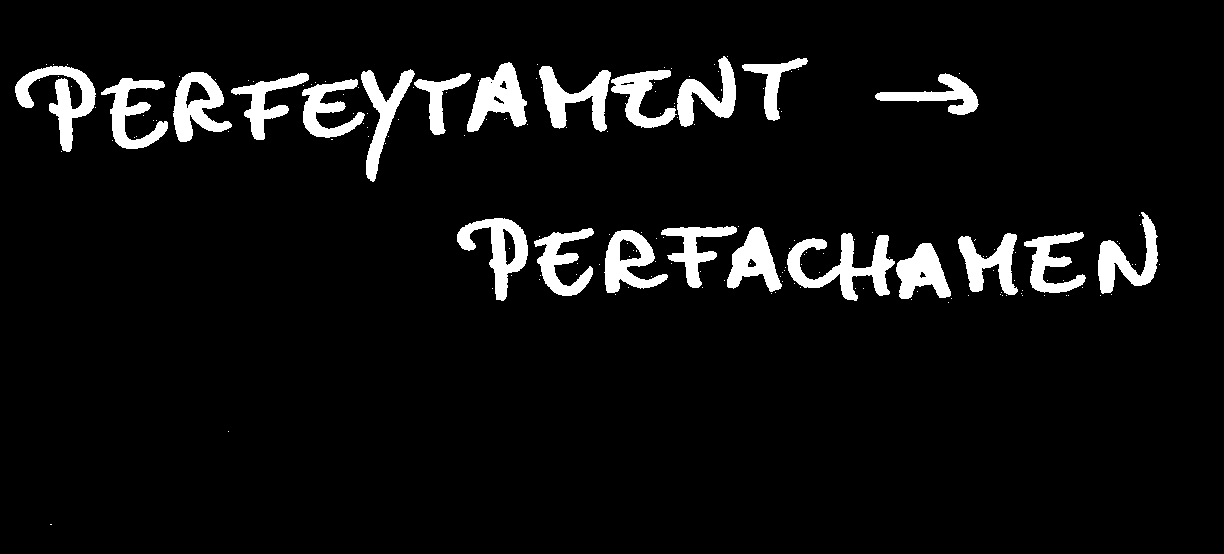 PERFEYTAMENT →
PERFACHAMEN